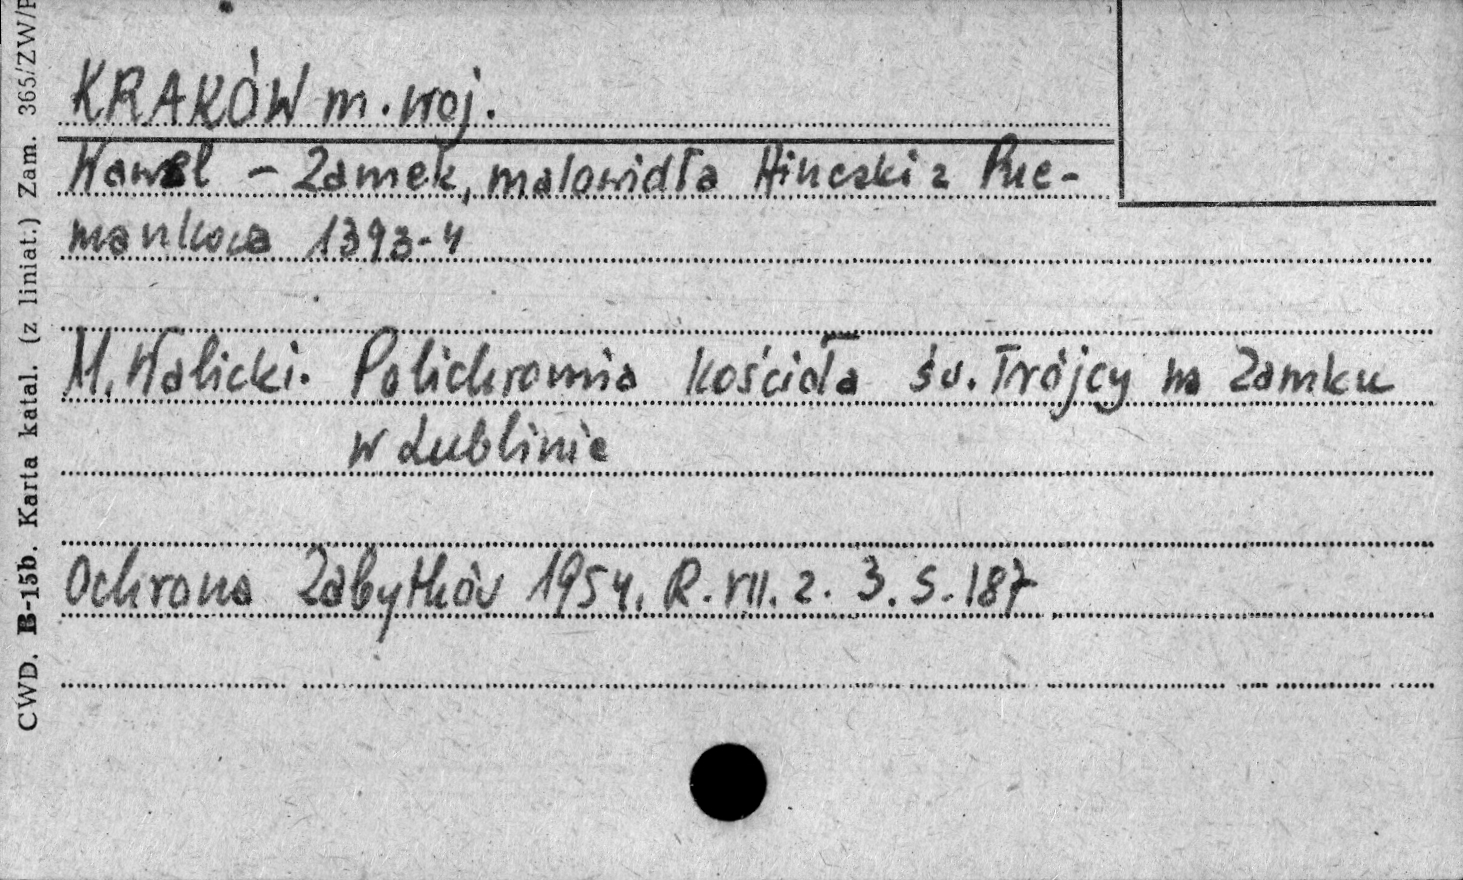 KRAKÓW m. woj.
Wawel - Zamek, malowidła Hinczki z Prze-
mankowa 1393-4
M. Walicki. Polichromia kościoła św. Trójcy na Zamku
w Lublinie
Ochrona Zabytków 1954. R. VII. z. 3. s. 187
CWD. B-15b. Karta katal. (z liniat.) Zam. 365/ZW/P